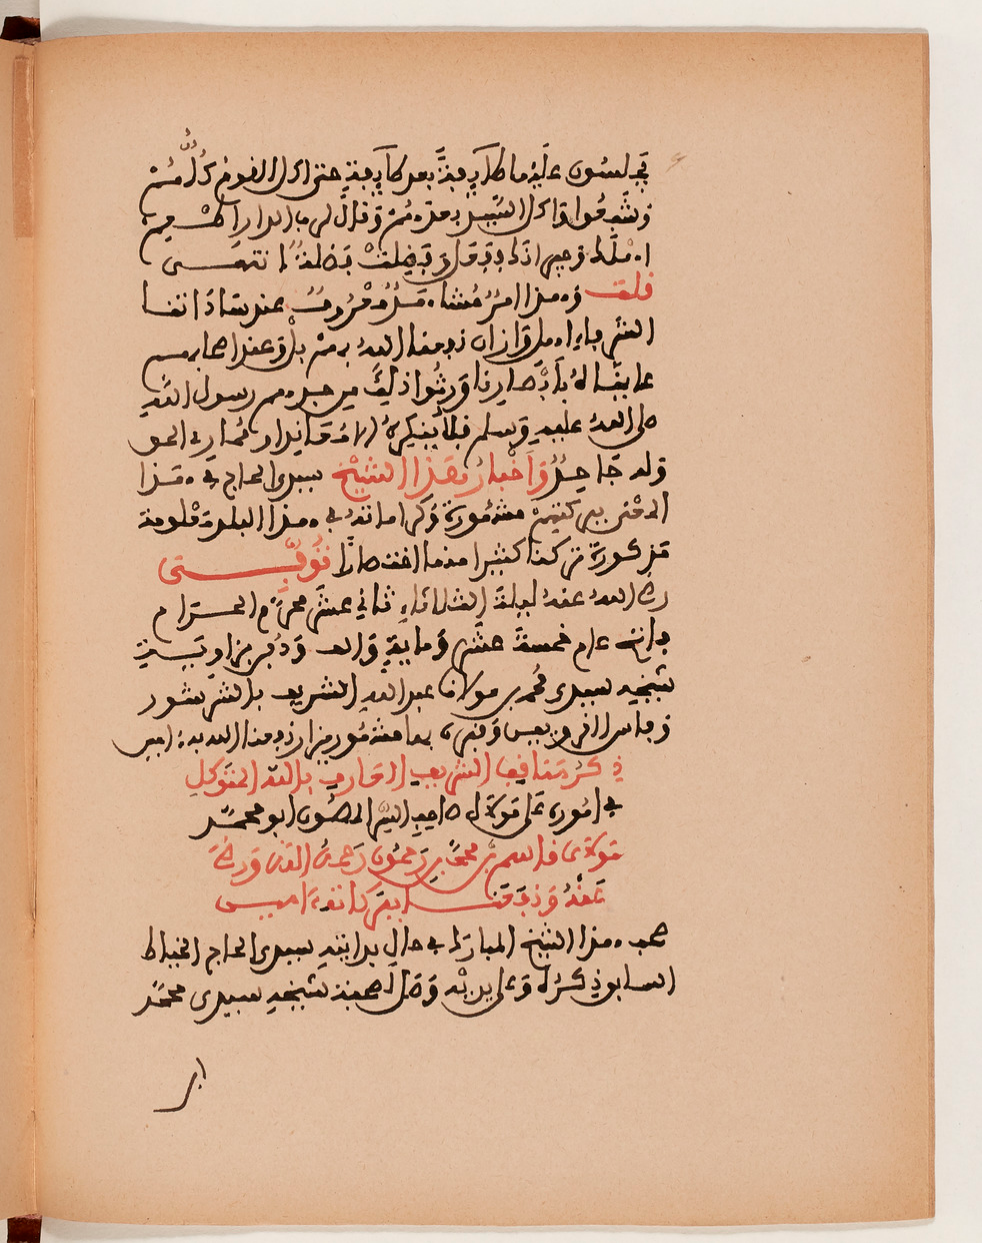 يجلسون عليه طائفة بعد طائفة حتى اكل القوم كلهم
وشبعوا واكل السيل بعدهم وقال لرب الدار
املك وجيرانك فبقيت بفضلة انتهى
قلت وهذا امر مشاهد معروف عند ساداتنا
الشرفاء اهل وازان نفعنا الله بهم بل وعند اصحابهم
عايناه بابصارنا ورثوا ذلك من جدهم رسول الله
صلى الله عليه وسلم فلا ينكره الا معاند او ممار في الحق
وله جاحد واخبار هذا الشيخ سيدي الحاج في هذا
المعنى كثيرة مشهورة وكراماته في هذا البلد معلومة
مذكورة تركنا كثيرا منها اختصارا توفي
رضي الله عنه ليلة الثلاثاء ثاني عشر محرم الحرام
فاتح عام خمسة عشر ومائة والف ودفن بزاوية
شيخه سيدي محمد بن مولانا عبد الله الشريف بالشرشور
وفاس القرويين وقبره بها مشهور يزار نفعنا الله به امين
ذكر مناقب الشريف العارف بالله المتوكل
في اموره على مولاه صاحب السر المصون ابو محمد
مولاي قاسم بن محمد بن رحمون رحمه الله ورضي
عنه ونفعنا ببركاته امين
صحب هذا الشيخ المبارك في حال بدايته سيدي الحاج الخياط
السابق ذكره وعلى يديه وصل لصحبة شيخه سيدي محمد
ابن